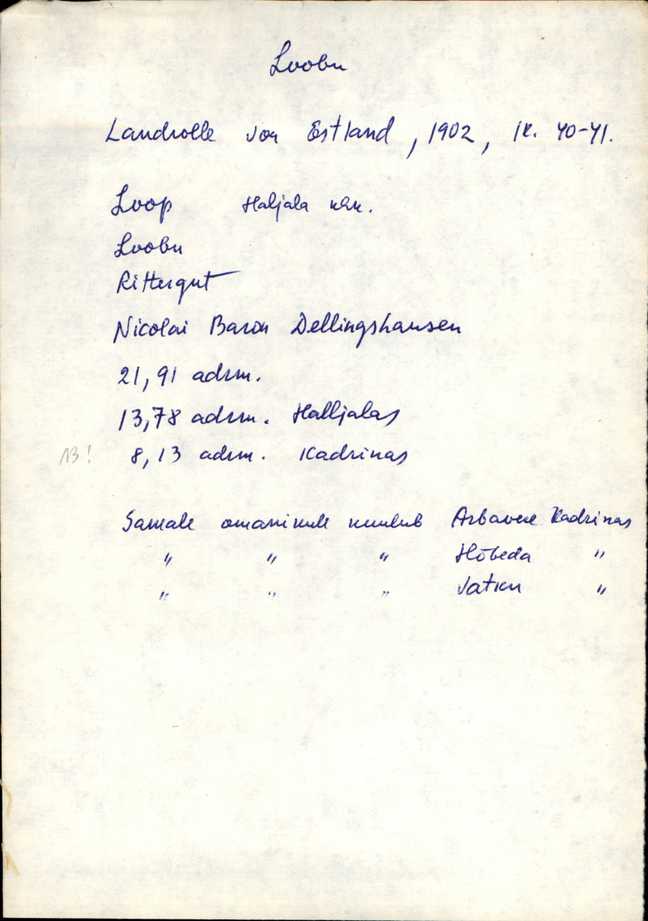 Loobu
Landrolle von Estland, 1902, lk. 40-41.
Loop Haljala khk.
Loobu
Rittergut
Nicolai Baron Dellingshausen
21,91 adrm.
13,78 adrm. Halljalas
NB! 8,13 adrm. Kadrinas
Samale omanikule kuulub Arbavere Kadrinas
" " " Hõbeda "
" " " Vatku "